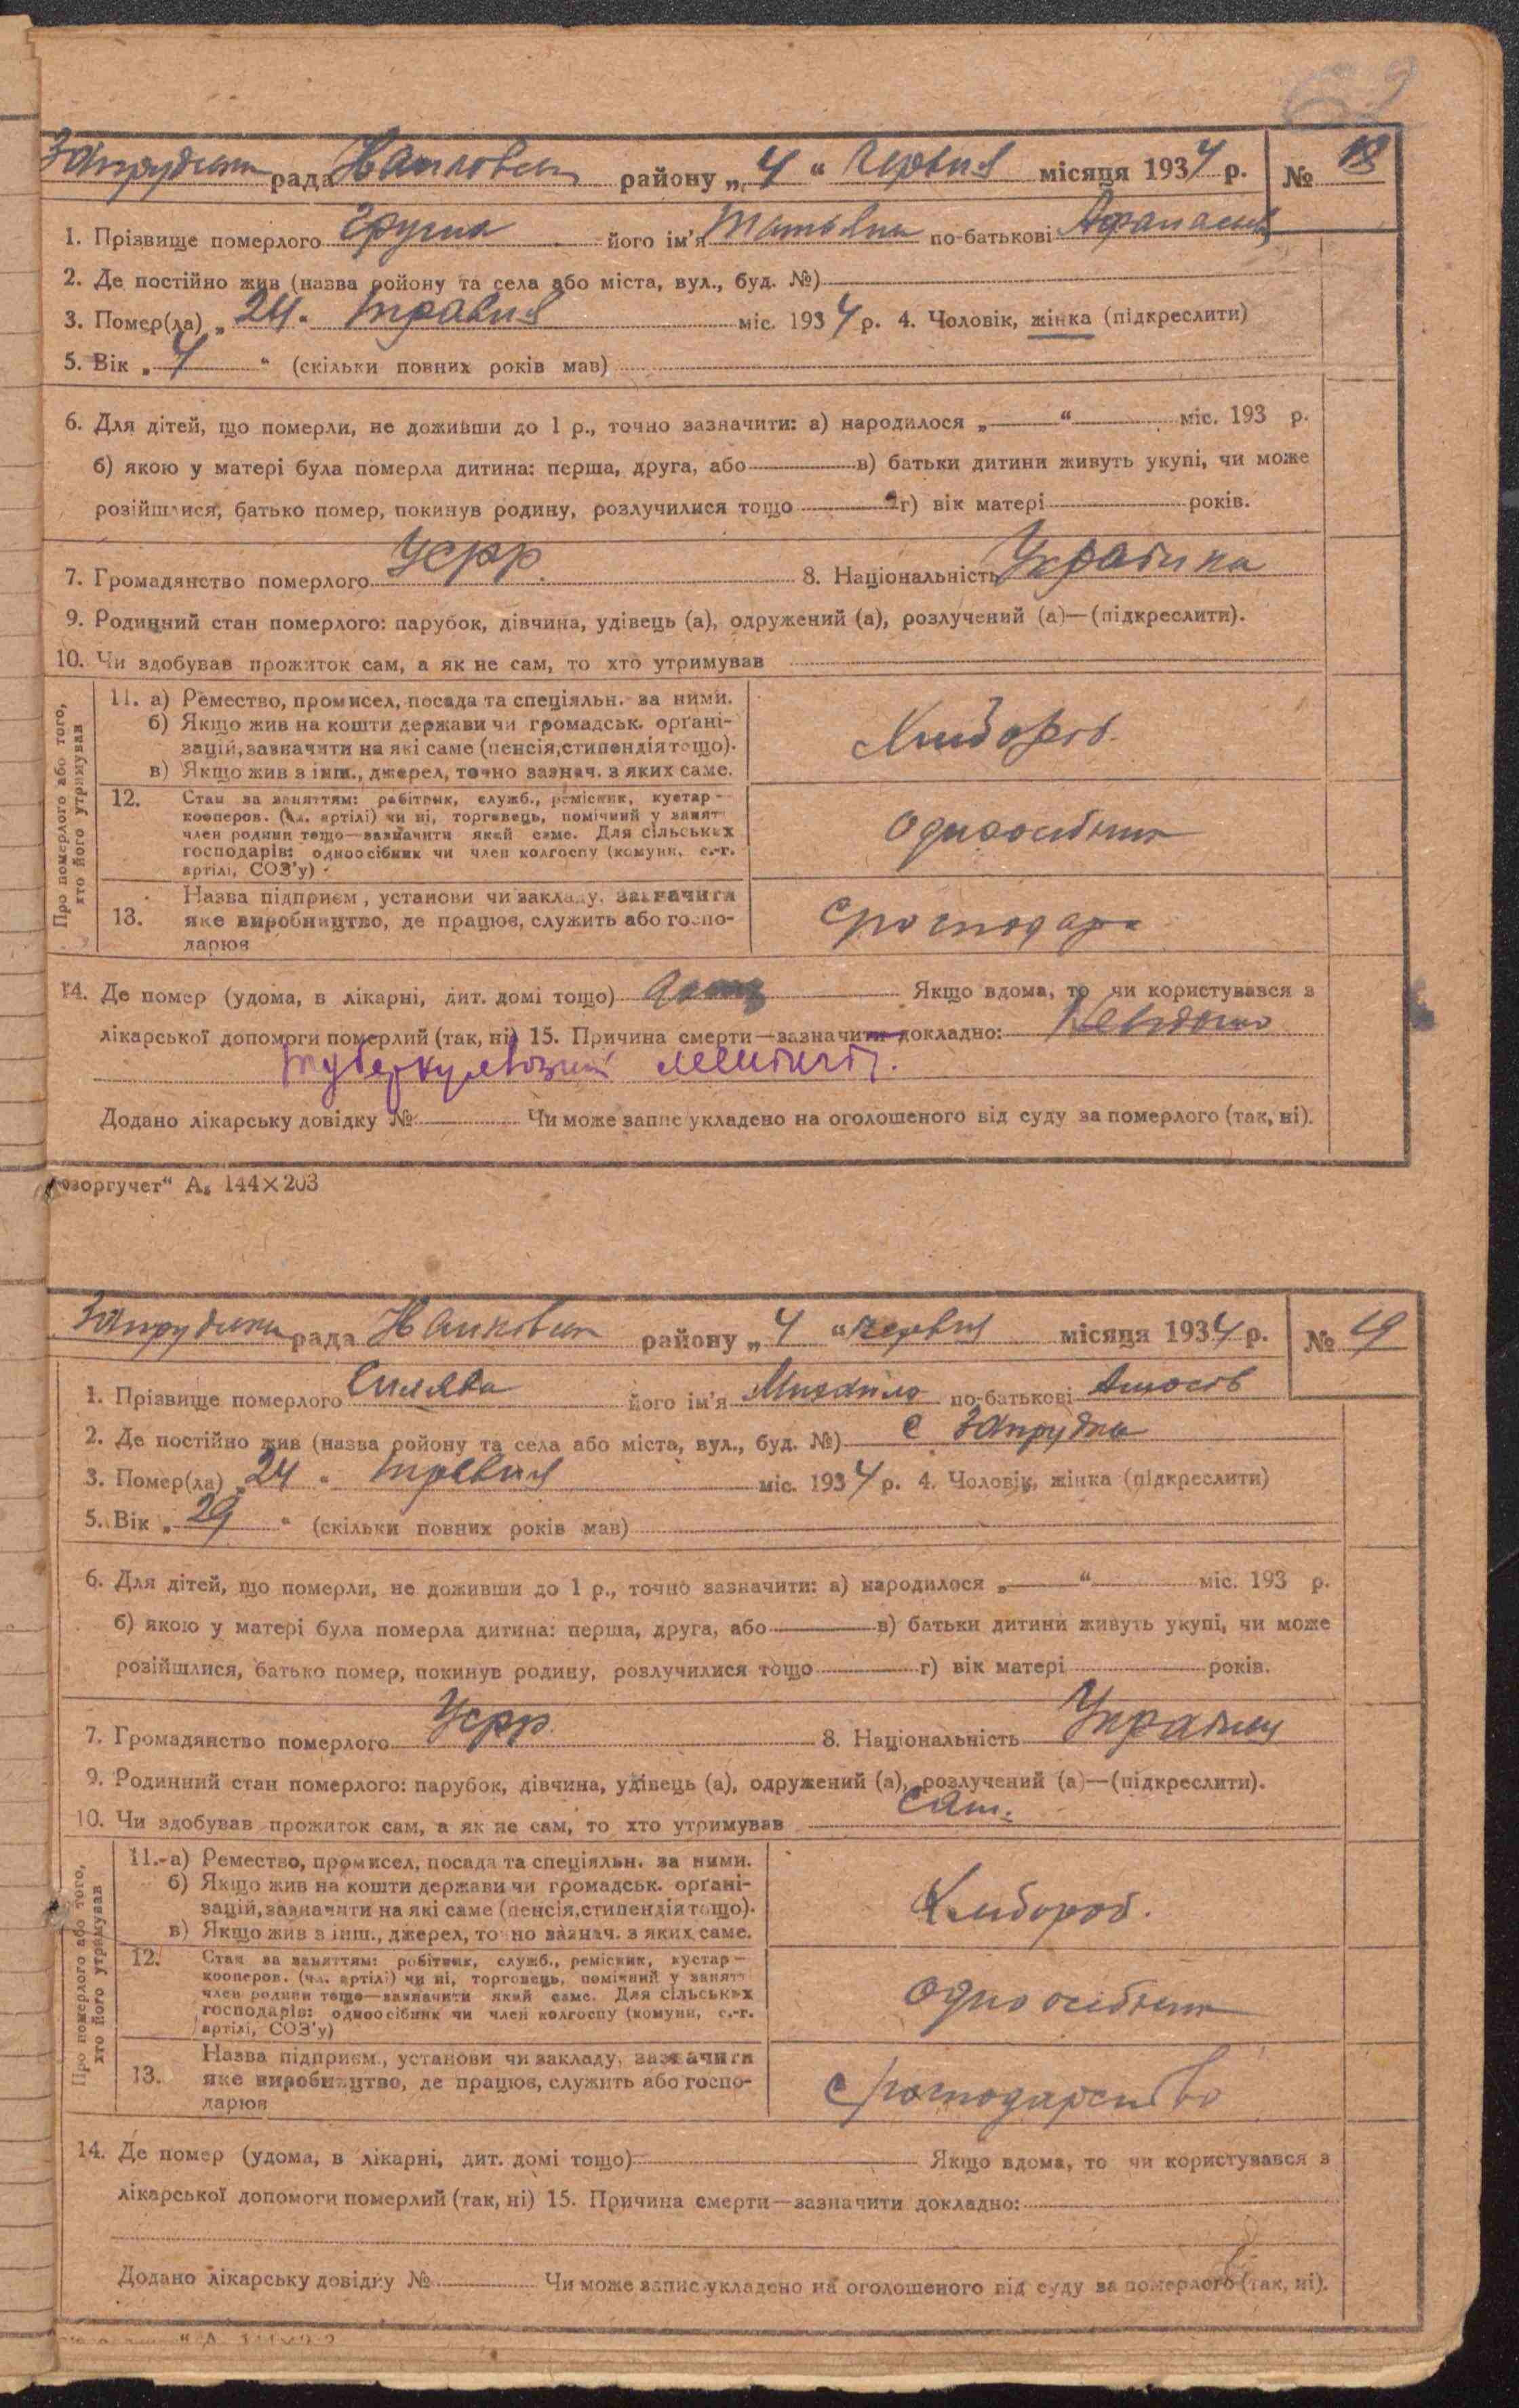 69
рада району „ 4 “ Червня місяця 1934 р. № 18
1. Прізвище померлого його ім'я по-батькові
2. Де постійно жив (назва ройону та села або міста, вул., буд. №)
3. Помер(ла) „ 24 “ травня міс. 1934 р. 4. Чоловік, жінка (підкреслити)
5. Вік „ 4 “ (скільки повних років мав)
6. Для дітей, що померли, не доживши до 1 р., точно зазначити: а) народилося „ “ міс. 193 р.
б) якою у матері була померла дитина: перша, друга, або в) батьки дитини живуть укупі, чи може
розійшлися, батько помер, покинув родину, розлучилися тощо г) вік матері років.
7. Громадянство померлого Усрр. 8. Національність Українка
9. Родинний стан померлого: парубок, дівчина, удівець (а), одружений (а), розлучений (а)—(підкреслити).
10. Чи здобував прожиток сам, а як не сам, то хто утримував
Про померлого або того, хто його утримував
11. а) Ремество, промисел, посада та спеціяльн. за ними.
б) Якщо жив на кошти держави чи громадськ. органі-
зацій, зазначити на які саме (пенсія, стипендія тощо).
в) Якщо жив з інш., джерел, точно зазнач. з яких саме.
Хлібороб.
12. Стан за заняттям: робітник, служб., ремісник, кустар—
кооперов. (чл. артілі) чи ні, торговець, помічний у занят
член родини тощо—зазначити який саме. Для сільських
господарів: одноосібник чи член колгоспу (комуни, с.-г.
артілі, СОЗ'у)
одноосібник
13. Назва підприєм., установи чи закладу, зазначити
яке виробництво, де працює, служить або госпо-
дарює
14. Де помер (удома, в лікарні, дит. домі тощо) Якщо вдома, то чи користувався з
лікарської допомоги померлий (так, ні) 15. Причина смерти—зазначити докладно: невідомо
туберкульозний менінгіт.
Додано лікарську довідку № Чи може запис укладено на оголошеного від суду за померлого (так, ні).
озоргучет“ А₅ 144×203
рада району „ 4 “ червня місяця 1934 р. № 19
1. Прізвище померлого його ім'я Михайло по-батькові
2. Де постійно жив (назва ройону та села або міста, вул., буд. №) с Запрудка
3. Помер(ла) „ 24 “ травня міс. 1934 р. 4. Чоловік, жінка (підкреслити)
5. Вік „ 29 “ (скільки повних років мав)
6. Для дітей, що померли, не доживши до 1 р., точно зазначити: а) народилося „ “ міс. 193 р.
б) якою у матері була померла дитина: перша, друга, або в) батьки дитини живуть укупі, чи може
розійшлися, батько помер, покинув родину, розлучилися тощо г) вік матері років.
7. Громадянство померлого Усрр. 8. Національність
9. Родинний стан померлого: парубок, дівчина, удівець (а), одружений (а), розлучений (а)—(підкреслити).
10. Чи здобував прожиток сам, а як не сам, то хто утримував сам.
Про померлого або того, хто його утримував
11. а) Ремество, промисел, посада та спеціяльн. за ними.
б) Якщо жив на кошти держави чи громадськ. органі-
зацій, зазначити на які саме (пенсія, стипендія тощо).
в) Якщо жив з інш., джерел, точно зазнач. з яких саме.
Хлібороб.
12. Стан за заняттям: робітник, служб., ремісник, кустар—
кооперов. (чл. артілі) чи ні, торговець, помічний у занят
член родини тощо—зазначити який саме. Для сільських
господарів: одноосібник чи член колгоспу (комуни, с.-г.
артілі, СОЗ'у)
одноосібник
13. Назва підприєм., установи чи закладу, зазначити
яке виробництво, де працює, служить або госпо-
дарює
с господарство
14. Де помер (удома, в лікарні, дит. домі тощо) Якщо вдома, то чи користувався з
лікарської допомоги померлий (так, ні) 15. Причина смерти—зазначити докладно:
Додано лікарську довідку № Чи може запис укладено на оголошеного від суду за померлого (так, ні).